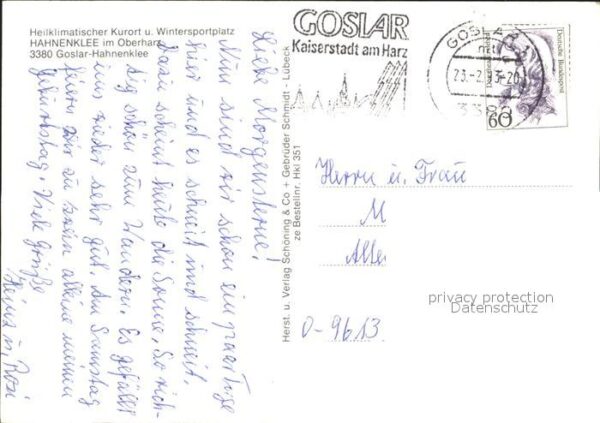 Heilklimatischer Kurort u. Wintersportplatz
HAHNENKLEE im Oberharz
3380 Goslar-Hahnenklee
GOSLAR
Kaiserstadt am Harz
GOSLAR 1
mtl
23-2.93-20
3380
Deutsche Bundespost
60
Liebe Morgensterne!
Nun sind wir schon ein paar Tage
hier und es schneit und schneit.
Dazu scheint heute die Sonne. So rich-
tig schön zum Wandern. Es gefällt
uns wieder sehr gut. Am Samstag
feiern wir zu zwein alleine meinen
Geburtstag. Viele Grüße
Heinz u. Rosi
Herst. u. Verlag Schöning & Co + Gebrüder Schmidt - Lübeck
ze Bestellnr. Hkl 351
Herrn u. Frau
M
Alle
O-9613
privacy protection
Datenschutz